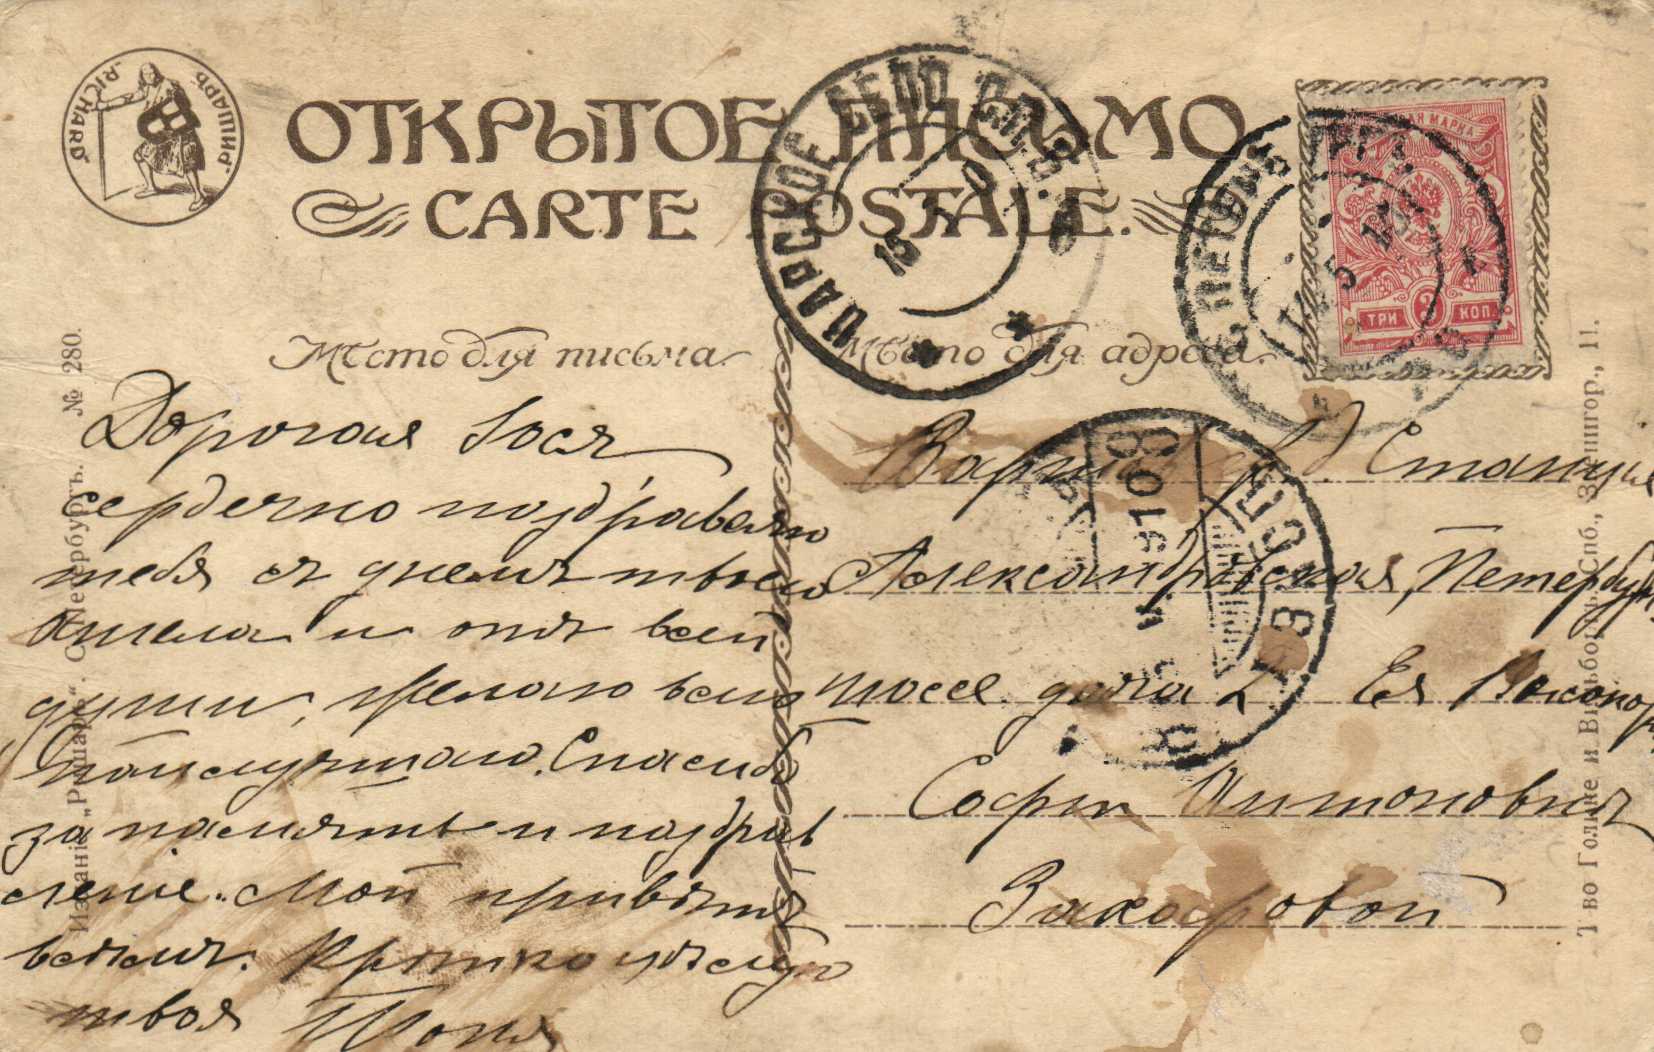 „РИШАРЪ“
„RICHARD“
ОТКРЫТОЕ ПИСЬМО
CARTE POSTALE.
ЦАРСКОЕ СЕЛО СПБ.
15
С. ПЕТЕРБУРГЪ
МАРКА
ТРИ 3 КОП.
Мѣсто для письма
Мѣсто для адреса
Дорогая Зося
сердечно поздравляю
тебя съ днемъ твоего
Ангела и отъ всей
души, желаю всего
наилучшаго. Спасибо
за память и поздрав
леніе. Мой привѣтъ
всѣмъ. Крѣпко цѣлую
твоя Тоня
Варш. ж. д. Станція
Александровская, Петербур
шоссе дача 2 Ея Высокор
Софіи Антоновнѣ
Захаровой
Изданіе „Ришаръ“. С. Петербургъ. № 280.
Т-во Голике и Вильборгъ. Спб., Звенигор., 11.